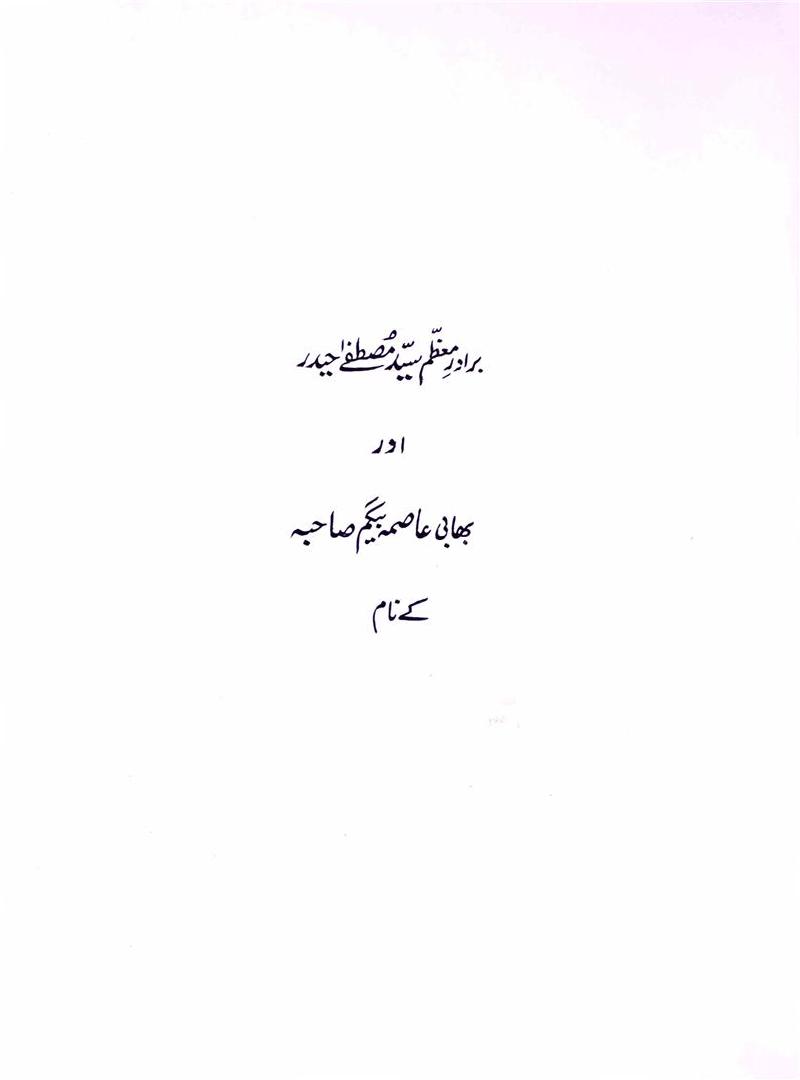 برادرِ معظّم سیّد مُصطفےٰ حیدر
اور
بھابی عاصمہ بیگم صاحبہ
کے نام